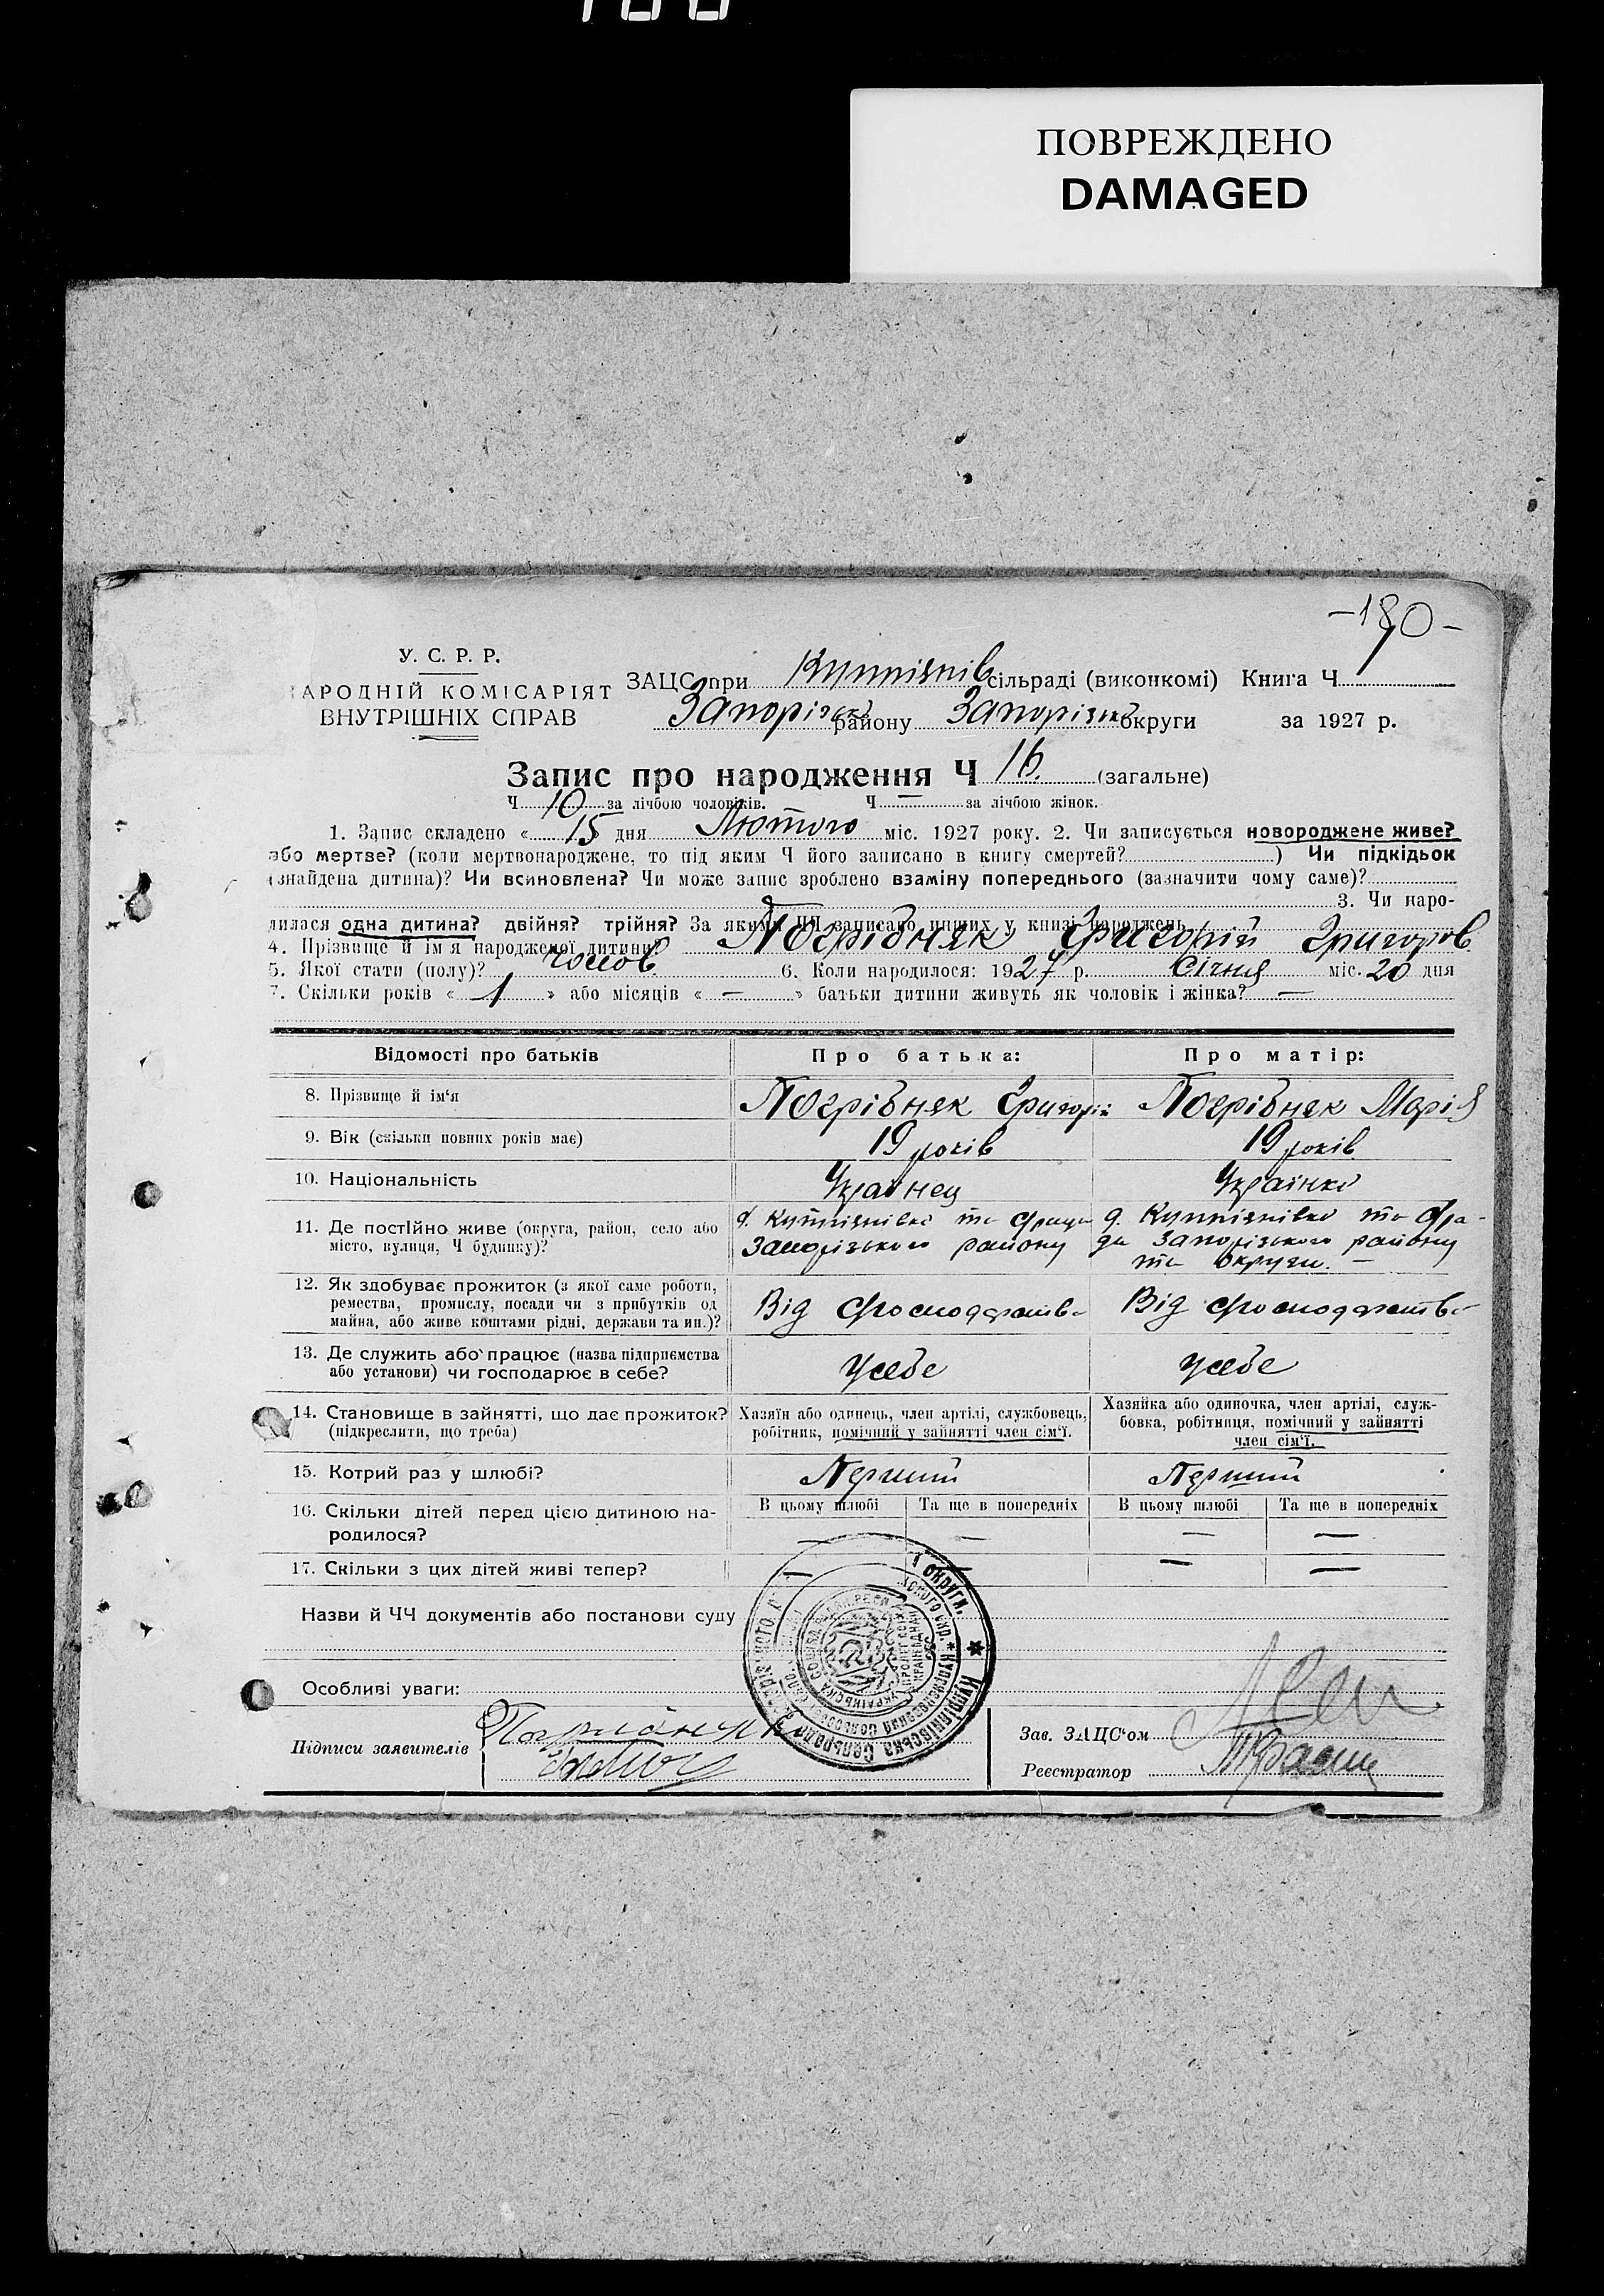 ПОВРЕЖДЕНО
DAMAGED
-190-
У. С. Р. Р.
АРОДНІЙ КОМІСАРІЯТ
ВНУТРІШНІХ СПРАВ
ЗАЦС при сільраді (виконкомі) Книга Ч
Запорізьк району Запорізьк округи за 1927 р.
Запис про народження Ч 16. (загальне)
Ч 10 за лічбою чоловіків. Ч — за лічбою жінок.
1. Запис складено « 15 » дня Лютого міс. 1927 року. 2. Чи записується новороджене живе?
або мертве? (коли мертвонароджене, то під яким Ч його записано в книгу смертей? ) Чи підкідьок
(знайдена дитина)? Чи всиновлена? Чи може запис зроблено взаміну попереднього (зазначити чому саме)?
3. Чи наро-
дилася одна дитина? двійня? трійня? За якими ЧЧ записано инших у книзі народжень
4. Прізвище й ім'я народженої дитини? Погрібняк Григорій Григоров
5. Якої стати (полу)? чолов. 6. Коли народилося: 1927 р. Січня міс. 20 дня
7. Скільки років « 1 » або місяців « — » батьки дитини живуть як чоловік і жінка? —
Відомості про батьків Про батька: Про матір:
8. Прізвище й ім'я Погрібняк Григорій Погрібняк Марія
9. Вік (скільки повних років має) 19 років 19 років
10. Національність Українец Українка
11. Де постійно живе (округа, район, село або
місто, вулиця, Ч будинку)?
Запорізького району
Запорізького району
та округи. —
12. Як здобуває прожиток (з якої саме роботи,
ремества, промислу, посади чи з прибутків од
майна, або живе коштами рідні, держави та ин.)?
Від Господарства Від Господарства
13. Де служить або працює (назва підприємства
або установи) чи господарює в себе?
Усебе Усебе
14. Становище в зайнятті, що дає прожиток?
(підкреслити, що треба)
Хазяїн або одинець, член артілі, службовець,
робітник, помічний у зайнятті член сім'ї.
Хазяйка або одиночка, член артілі, служ-
бовка, робітниця, помічний у зайнятті
член сім'ї.
15. Котрий раз у шлюбі? Перший Перший
16. Скільки дітей перед цією дитиною на-
родилося?
В цьому шлюбі Та ще в попередніх В цьому шлюбі Та ще в попередніх
— — — —
17. Скільки з цих дітей живі тепер? — — — —
Назви й ЧЧ документів або постанови суду
Особливі уваги:
Підписи заявителів
Зав. ЗАЦС'ом
Реєстратор